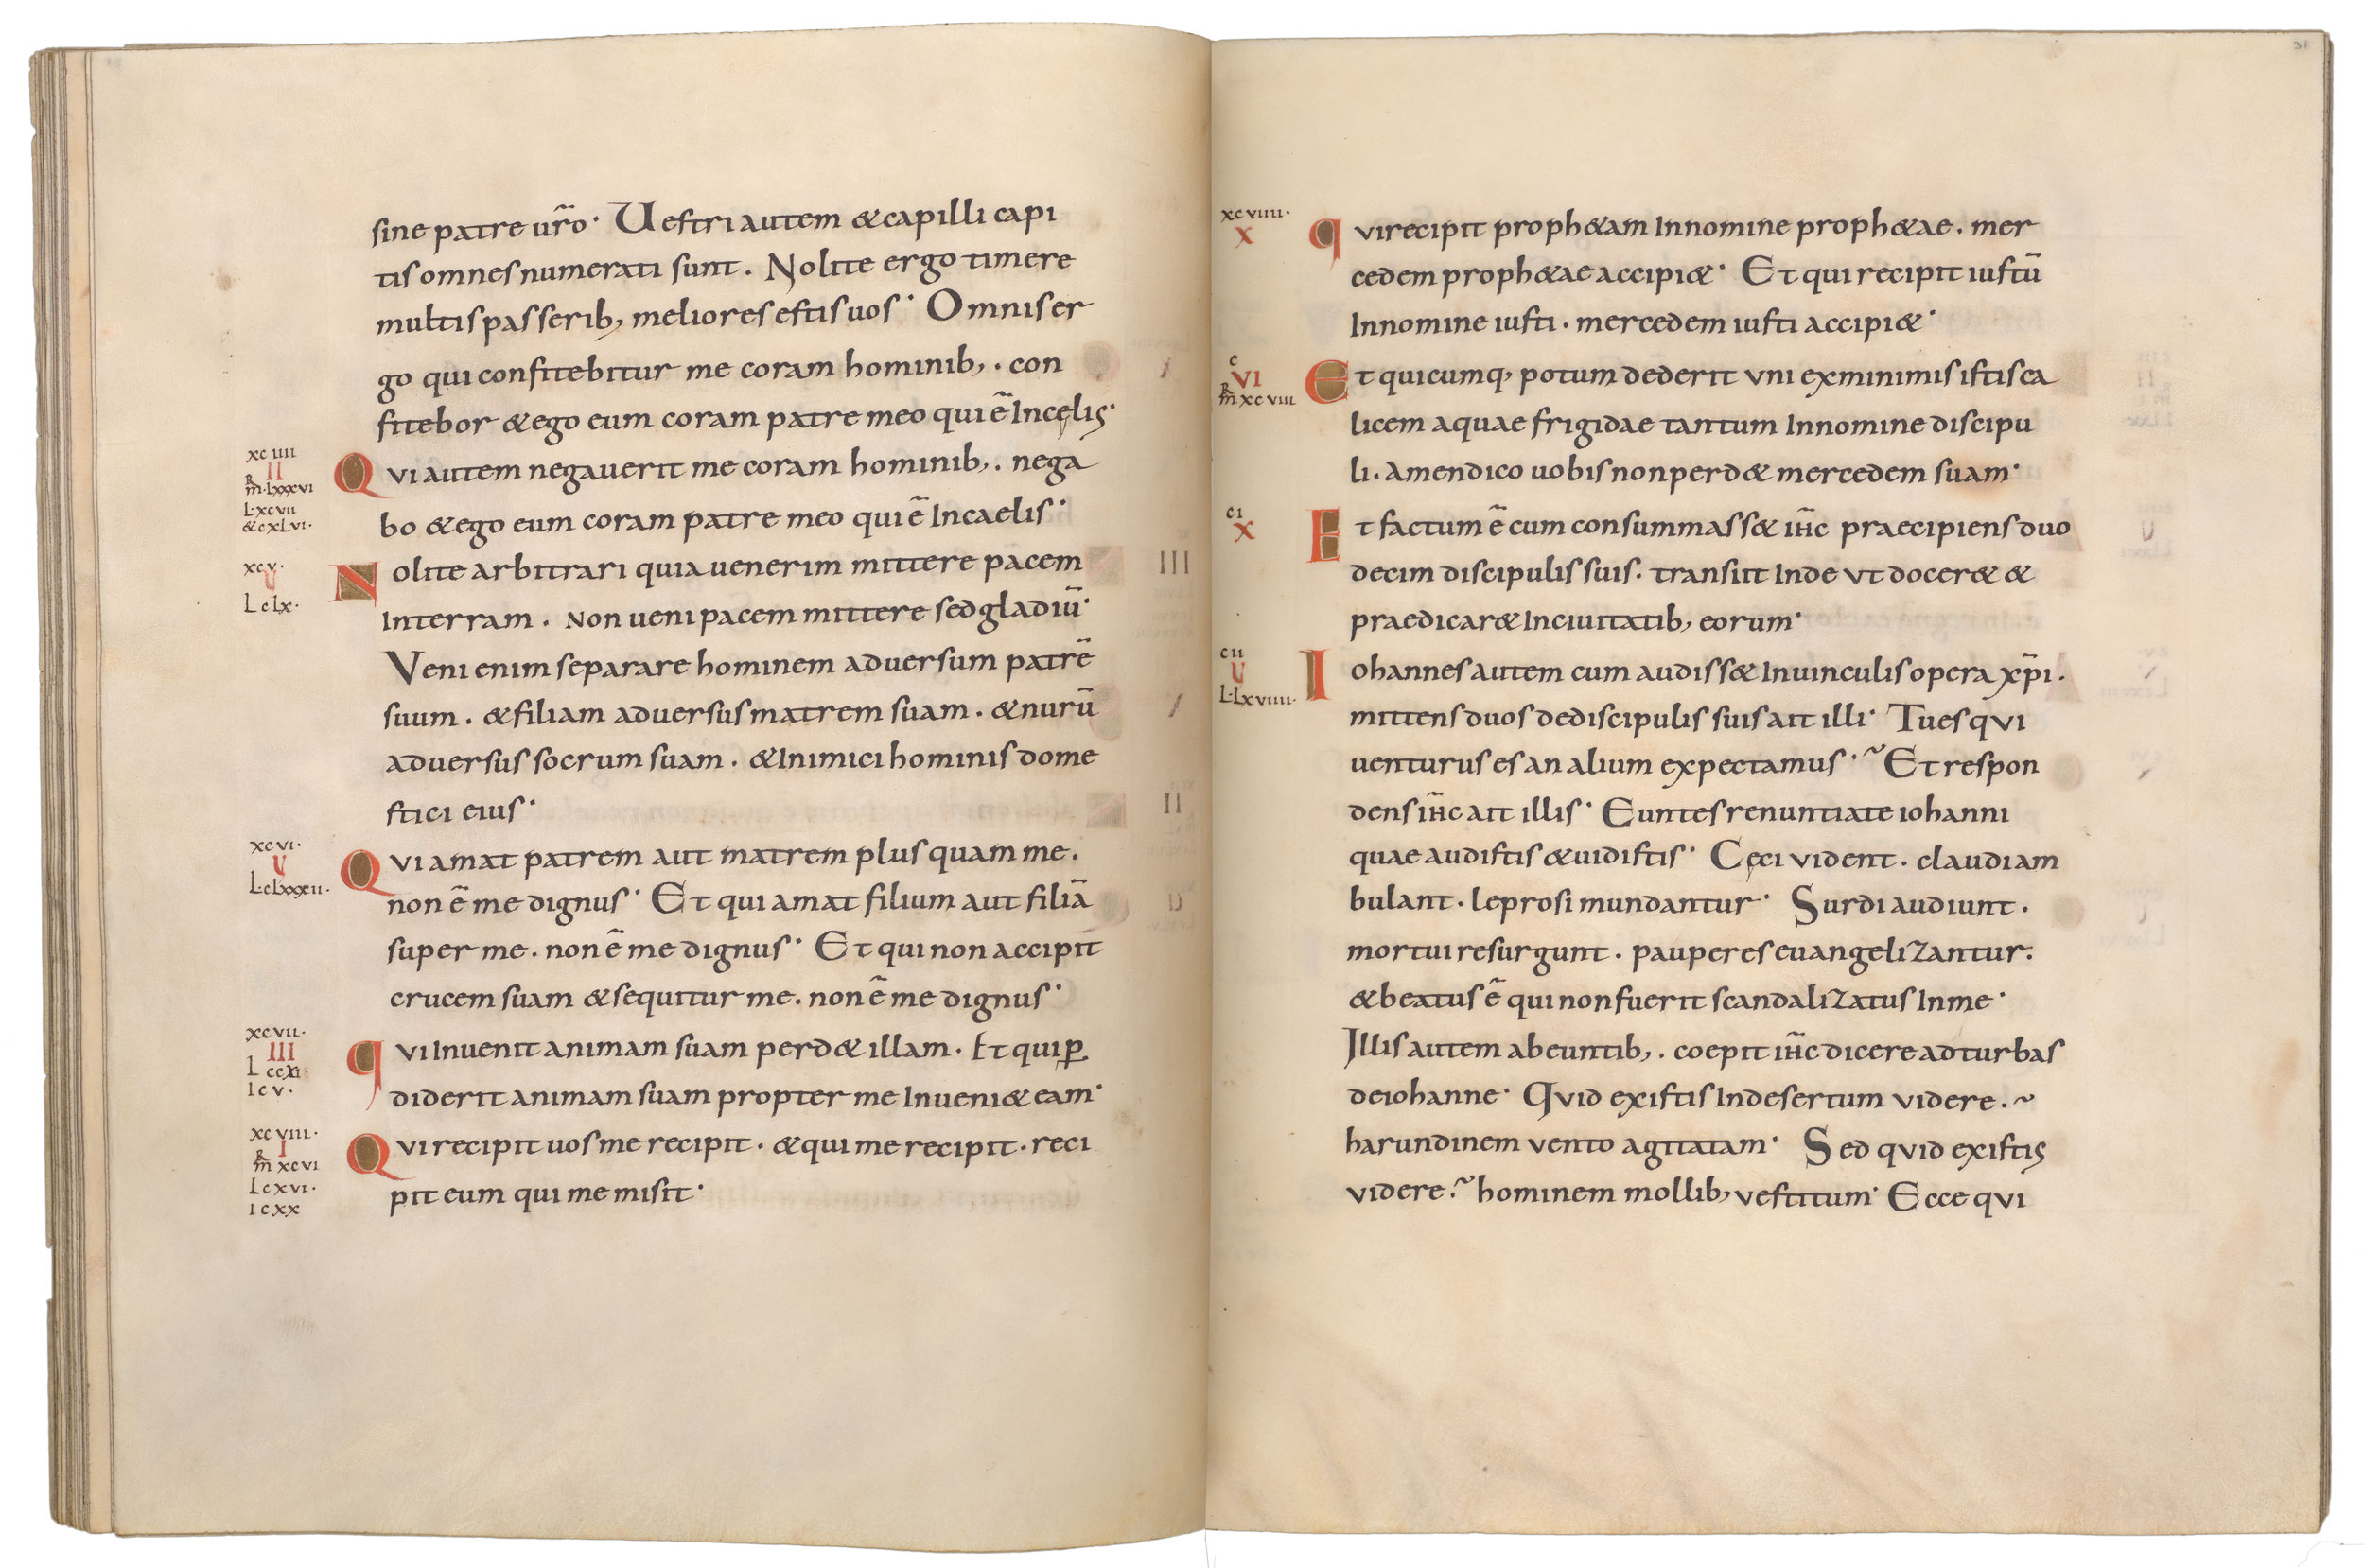 sine patre ur̃o· Uestri autem & capilli capi
tis omnes numerati sunt. Nolite ergo timere
multis passerib, meliores estis uos· Omnis er
go qui confitebitur me coram hominib,. con
fitebor & ego eum coram patre meo qui ē Incęlis·
xciiii
II
m̃·lxxxvi
L·xcvii
&cxLvi·
Qvi autem negauerit me coram hominib,. nega
bo & ego eum coram patre meo qui ē Incaelis·
xcv·
U
Lclx·
Nolite arbitrari quia uenerim mittere pacem
Interram. Non ueni pacem mittere sed gladiū·
Veni enim separare hominem aduersum patrē
suum. & filiam aduersus matrem suam. & nurū
aduersus socrum suam. & Inimici hominis dome
stici eius·
xcvi·
U
L·clxxxii·
Qvi amat patrem aut matrem plus quam me.
non ē me dignus· Et qui amat filium aut filiā
super me. non ē me dignus· Et qui non accipit
crucem suam & sequitur me. non ē me dignus·
xcvii·
III
L ccxi·
I cv·
qvi Inuenit animam suam perd& illam. Et qui ꝑ
diderit animam suam propter me Inueni& eam·
xcviii·
I
m̃ xcvi
Lcxvi·
I cxx
Qvi recipit uos me recipit. & qui me recipit. reci
pit eum qui me misit·
xcviiii·
X
qvi recipit proph&am Innomine proph&ae. mer
cedem proph&ae accipi&· Et qui recipit iustū
Innomine iusti. mercedem iusti accipi&·
c
VI
m̃ xcviii
Et quicumq, potum dederit vni ex minimis istis ca
licem aquae frigidae tantum Innomine discipu
li. amen dico uobis non perd& mercedem suam·
ci
X
Et factum ē cum consummass& ih̃c praecipiens duo
decim discipulis suis. transiit Inde vt docer& &
praedicar& Inciuitatib, eorum·
cii
U
L·Lxviiii·
Iohannes autem cum audiss& Inuinculis opera xp̄i.
mittens duos de discipulis suis ait illi· Tu es qvi
uenturus es an alium expectamus·~ Et respon
dens ih̃c ait illis· Euntes renuntiate iohanni
quae audistis & uidistis· Cęci vident. claudi am
bulant. leprosi mundantur· Surdi audiunt.
mortui resurgunt. pauperes euangelizantur.
& beatus ē qui non fuerit scandalizatus Inme·
Illis autem abeuntib,. coepit ih̃c dicere ad turbas
de iohanne· Qvid existis Indesertum videre.~
harundinem vento agitatam· Sed qvid existis
videre.~ hominem mollib, vestitum· Ecce qvi